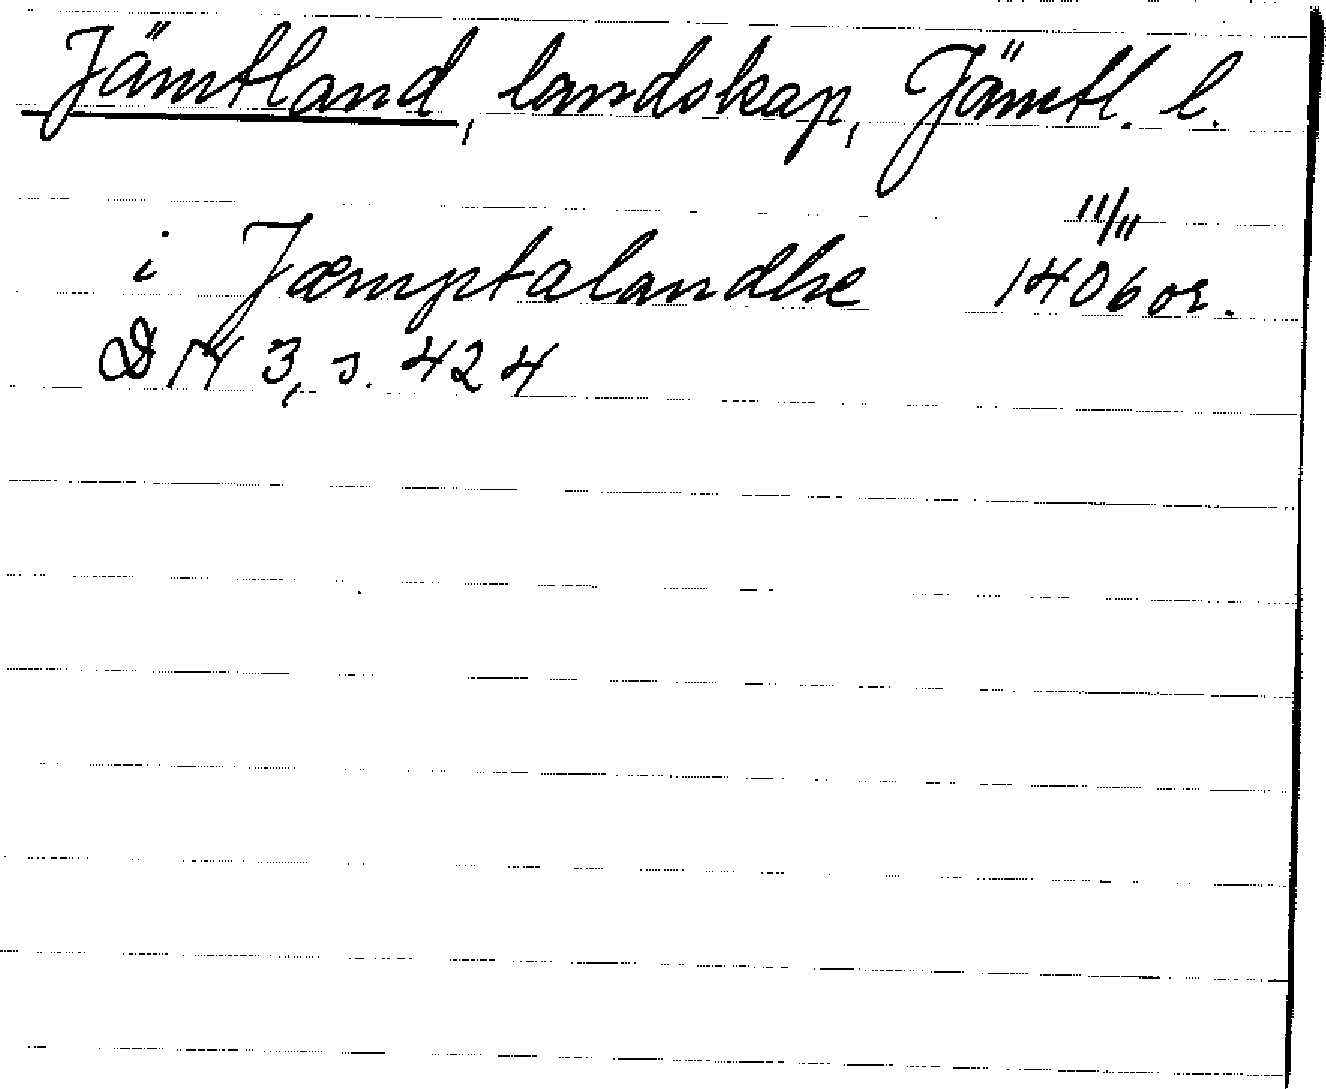 Jämtland, landskap, Jämtl. l.
i Jæmptalandhe 11/11 1406 or.
DN 3, s. 424